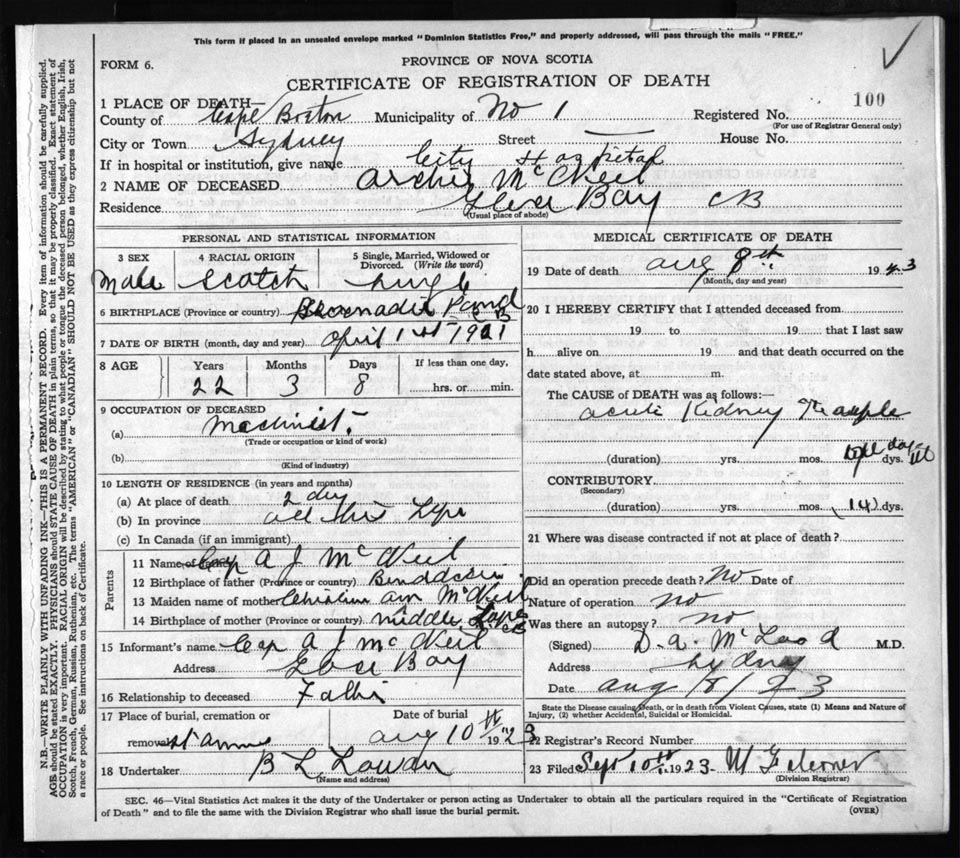 This form if placed in an unsealed envelope marked "Dominion Statistics Free," and properly addressed, will pass through the mails "FREE."
FORM 6.
PROVINCE OF NOVA SCOTIA
CERTIFICATE OF REGISTRATION OF DEATH
100
1 PLACE OF DEATH—
County of Cape Breton Municipality of No 1 Registered No.
(For use of Registrar General only)
City or Town Sydney Street — House No.
If in hospital or institution, give name City Hospital
2 NAME OF DECEASED Archie McNeil
Residence Glace Bay CB
(Usual place of abode)
PERSONAL AND STATISTICAL INFORMATION
3 SEX 4 RACIAL ORIGIN 5 Single, Married, Widowed or Divorced. (Write the word)
Male Scotch Single
6 BIRTHPLACE (Province or country) Pond CB
7 DATE OF BIRTH (month, day and year) April 1st 1901
8 AGE Years Months Days If less than one day,
22 3 8 hrs. or min.
9 OCCUPATION OF DECEASED
(a) Machinist.
(Trade or occupation or kind of work)
(b)
(Kind of industry)
10 LENGTH OF RESIDENCE (in years and months)
(a) At place of death 2 day
(b) In province all his Life
(c) In Canada (if an immigrant)
Parents
11 Name of father Cap A J McNeil
12 Birthplace of father (Province or country)
13 Maiden name of mother Christine Ann McNeil
14 Birthplace of mother (Province or country) Middle Cape CB
15 Informant's name Cap A J McNeil
Address Glace Bay
16 Relationship to deceased Father
17 Place of burial, cremation or removal St Anns Date of burial Aug 10th 1923
18 Undertaker B L
(Name and address)
MEDICAL CERTIFICATE OF DEATH
19 Date of death Aug 8th 1923
(Month, day and year)
20 I HEREBY CERTIFY that I attended deceased from
19 to 19 that I last saw
h alive on 19 and that death occurred on the
date stated above, at m.
The CAUSE of DEATH was as follows:—
Acute Kidney Trouble
(duration) yrs. mos. dys. day ill
CONTRIBUTORY
(Secondary)
(duration) yrs. mos. (14) dys.
21 Where was disease contracted if not at place of death?
Did an operation precede death? No Date of
Nature of operation no
Was there an autopsy? no
(Signed) D. A. McLeod M.D.
Address Sydney
Date Aug /8/23
State the Disease causing Death, or in death from Violent Causes, state (1) Means and Nature of
Injury, (2) whether Accidental, Suicidal or Homicidal.
22 Registrar's Record Number
23 Filed Sept 10th 1923.
(Division Registrar)
SEC. 46—Vital Statistics Act makes it the duty of the Undertaker or person acting as Undertaker to obtain all the particulars required in the "Certificate of Registration
of Death" and to file the same with the Division Registrar who shall issue the burial permit.
(OVER)
N.B.—WRITE PLAINLY WITH UNFADING INK—THIS IS A PERMANENT RECORD. Every item of information should be carefully supplied.
AGE should be stated EXACTLY. PHYSICIANS should STATE CAUSE OF DEATH in plain terms, so that it may be properly classified. Exact statement of
OCCUPATION is very important. RACIAL ORIGIN will be described by stating to what people or tongue the deceased person belonged, whether English, Irish,
Scotch, French, German, Russian, Ruthenian, etc. The terms "AMERICAN" or "CANADIAN" SHOULD NOT BE USED as they express citizenship but not
a race or people. See instructions on back of Certificate.